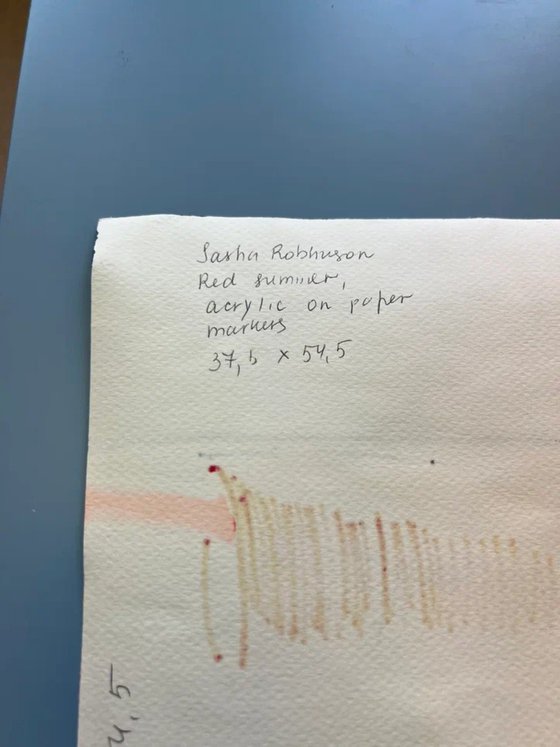 Sasha Robhuson
Red summer,
acrylic on paper
markers
37,5 x 54,5
4,5